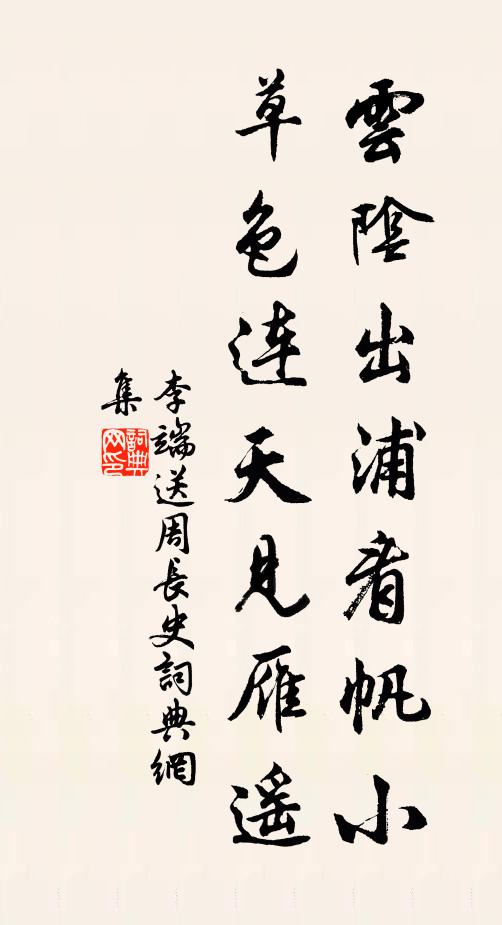 雲陰出浦看帆小
草色連天見雁遥
李端送周長史詞典網
集
詞典网印